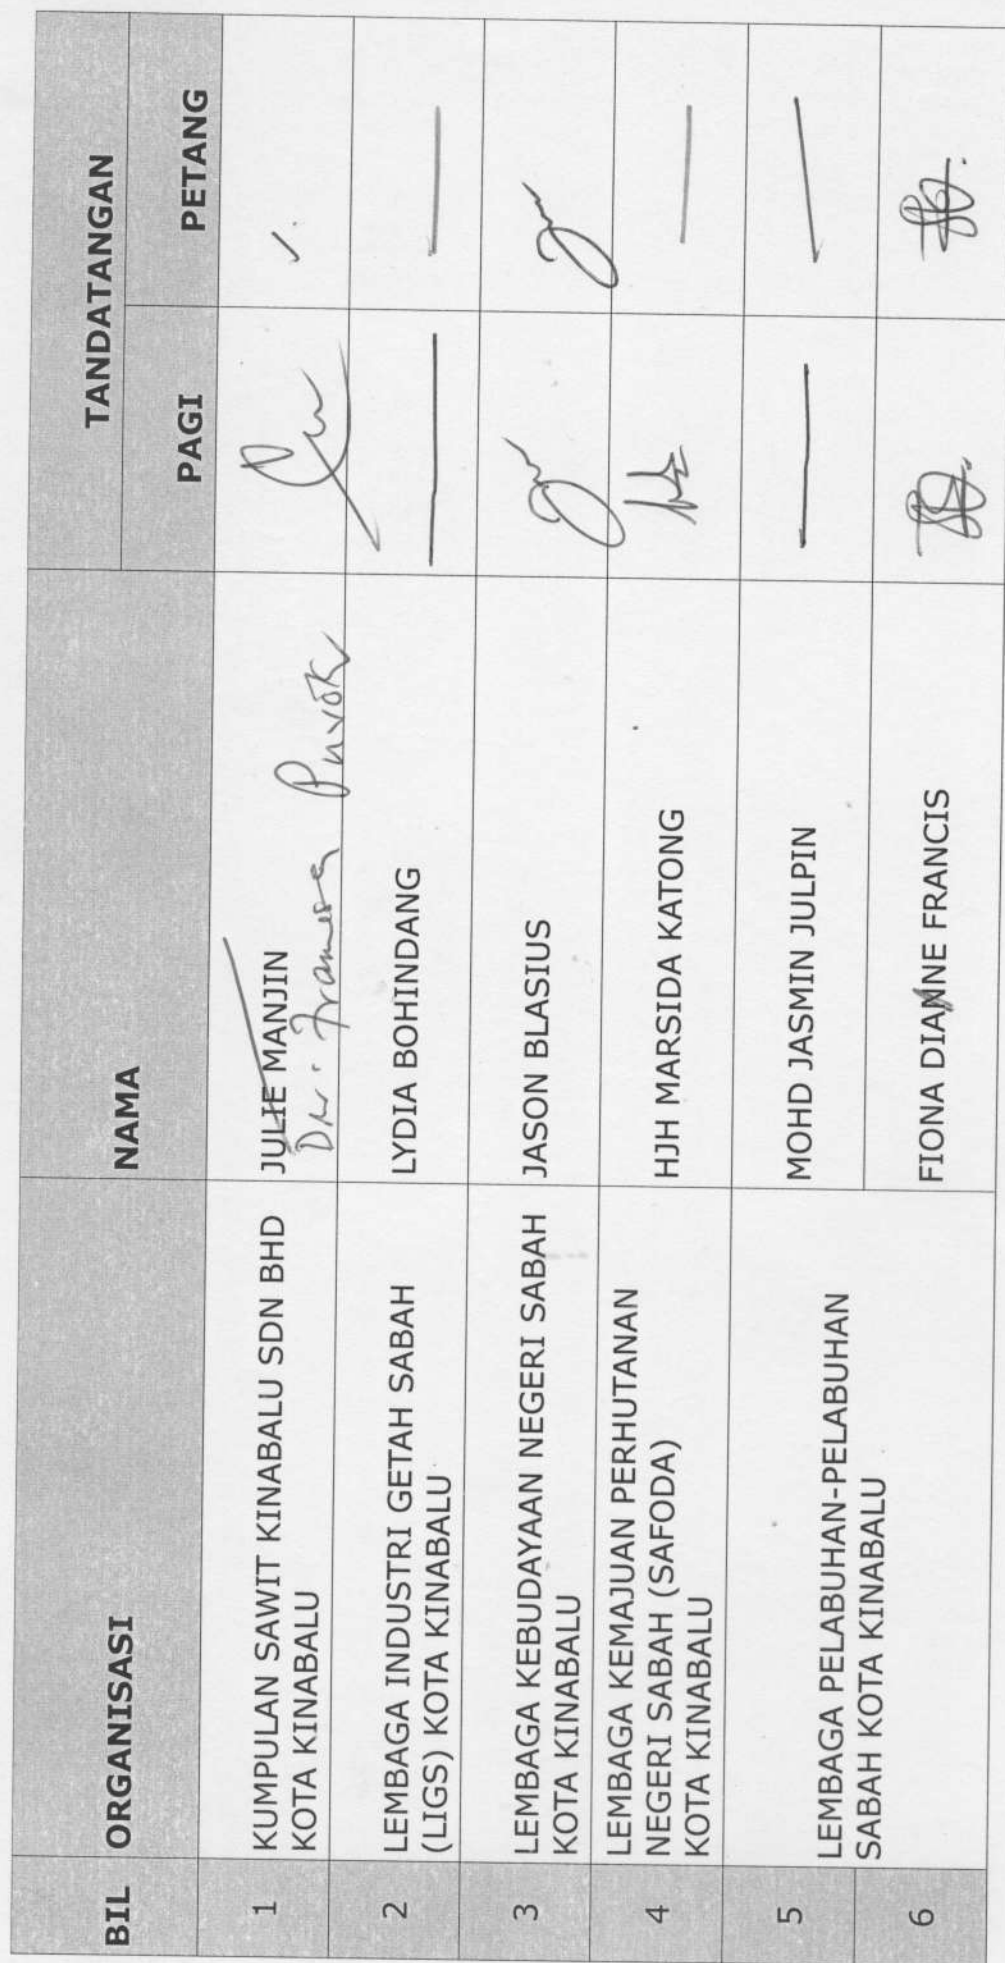 BIL ORGANISASI NAMA TANDATANGAN
PAGI PETANG
1 KUMPULAN SAWIT KINABALU SDN BHD
KOTA KINABALU
JULIE MANJIN
2 LEMBAGA INDUSTRI GETAH SABAH
(LIGS) KOTA KINABALU
LYDIA BOHINDANG
3 LEMBAGA KEBUDAYAAN NEGERI SABAH
KOTA KINABALU
JASON BLASIUS
4 LEMBAGA KEMAJUAN PERHUTANAN
NEGERI SABAH (SAFODA)
KOTA KINABALU
HJH MARSIDA KATONG
5 LEMBAGA PELABUHAN-PELABUHAN
SABAH KOTA KINABALU
MOHD JASMIN JULPIN
6 FIONA DIANNE FRANCIS